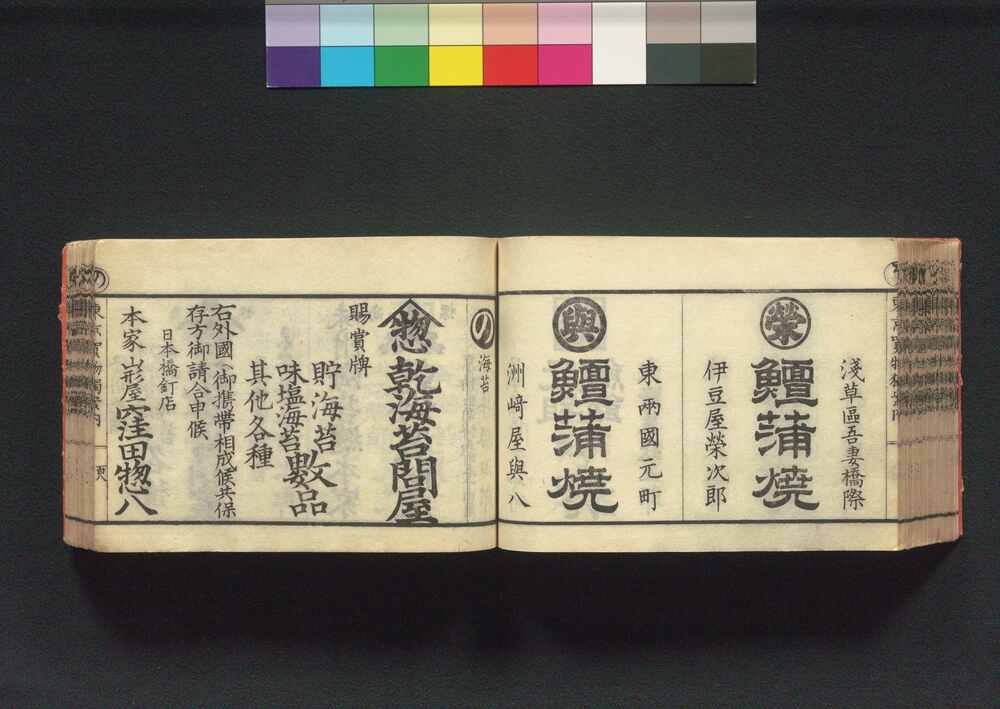 淺草區吾妻橋際
榮
鱣蒲焼
伊豆屋榮次郎
東兩國元町
與
鱣蒲焼
洲﨑屋與八
の
海苔
惣
乾海苔問屋
賜賞牌
貯海苔
味塩海苔數品
其他各種
右外國御携帯相成候共保
存方御請合申候
日本橋釘店
本家山形屋窪田惣八
の